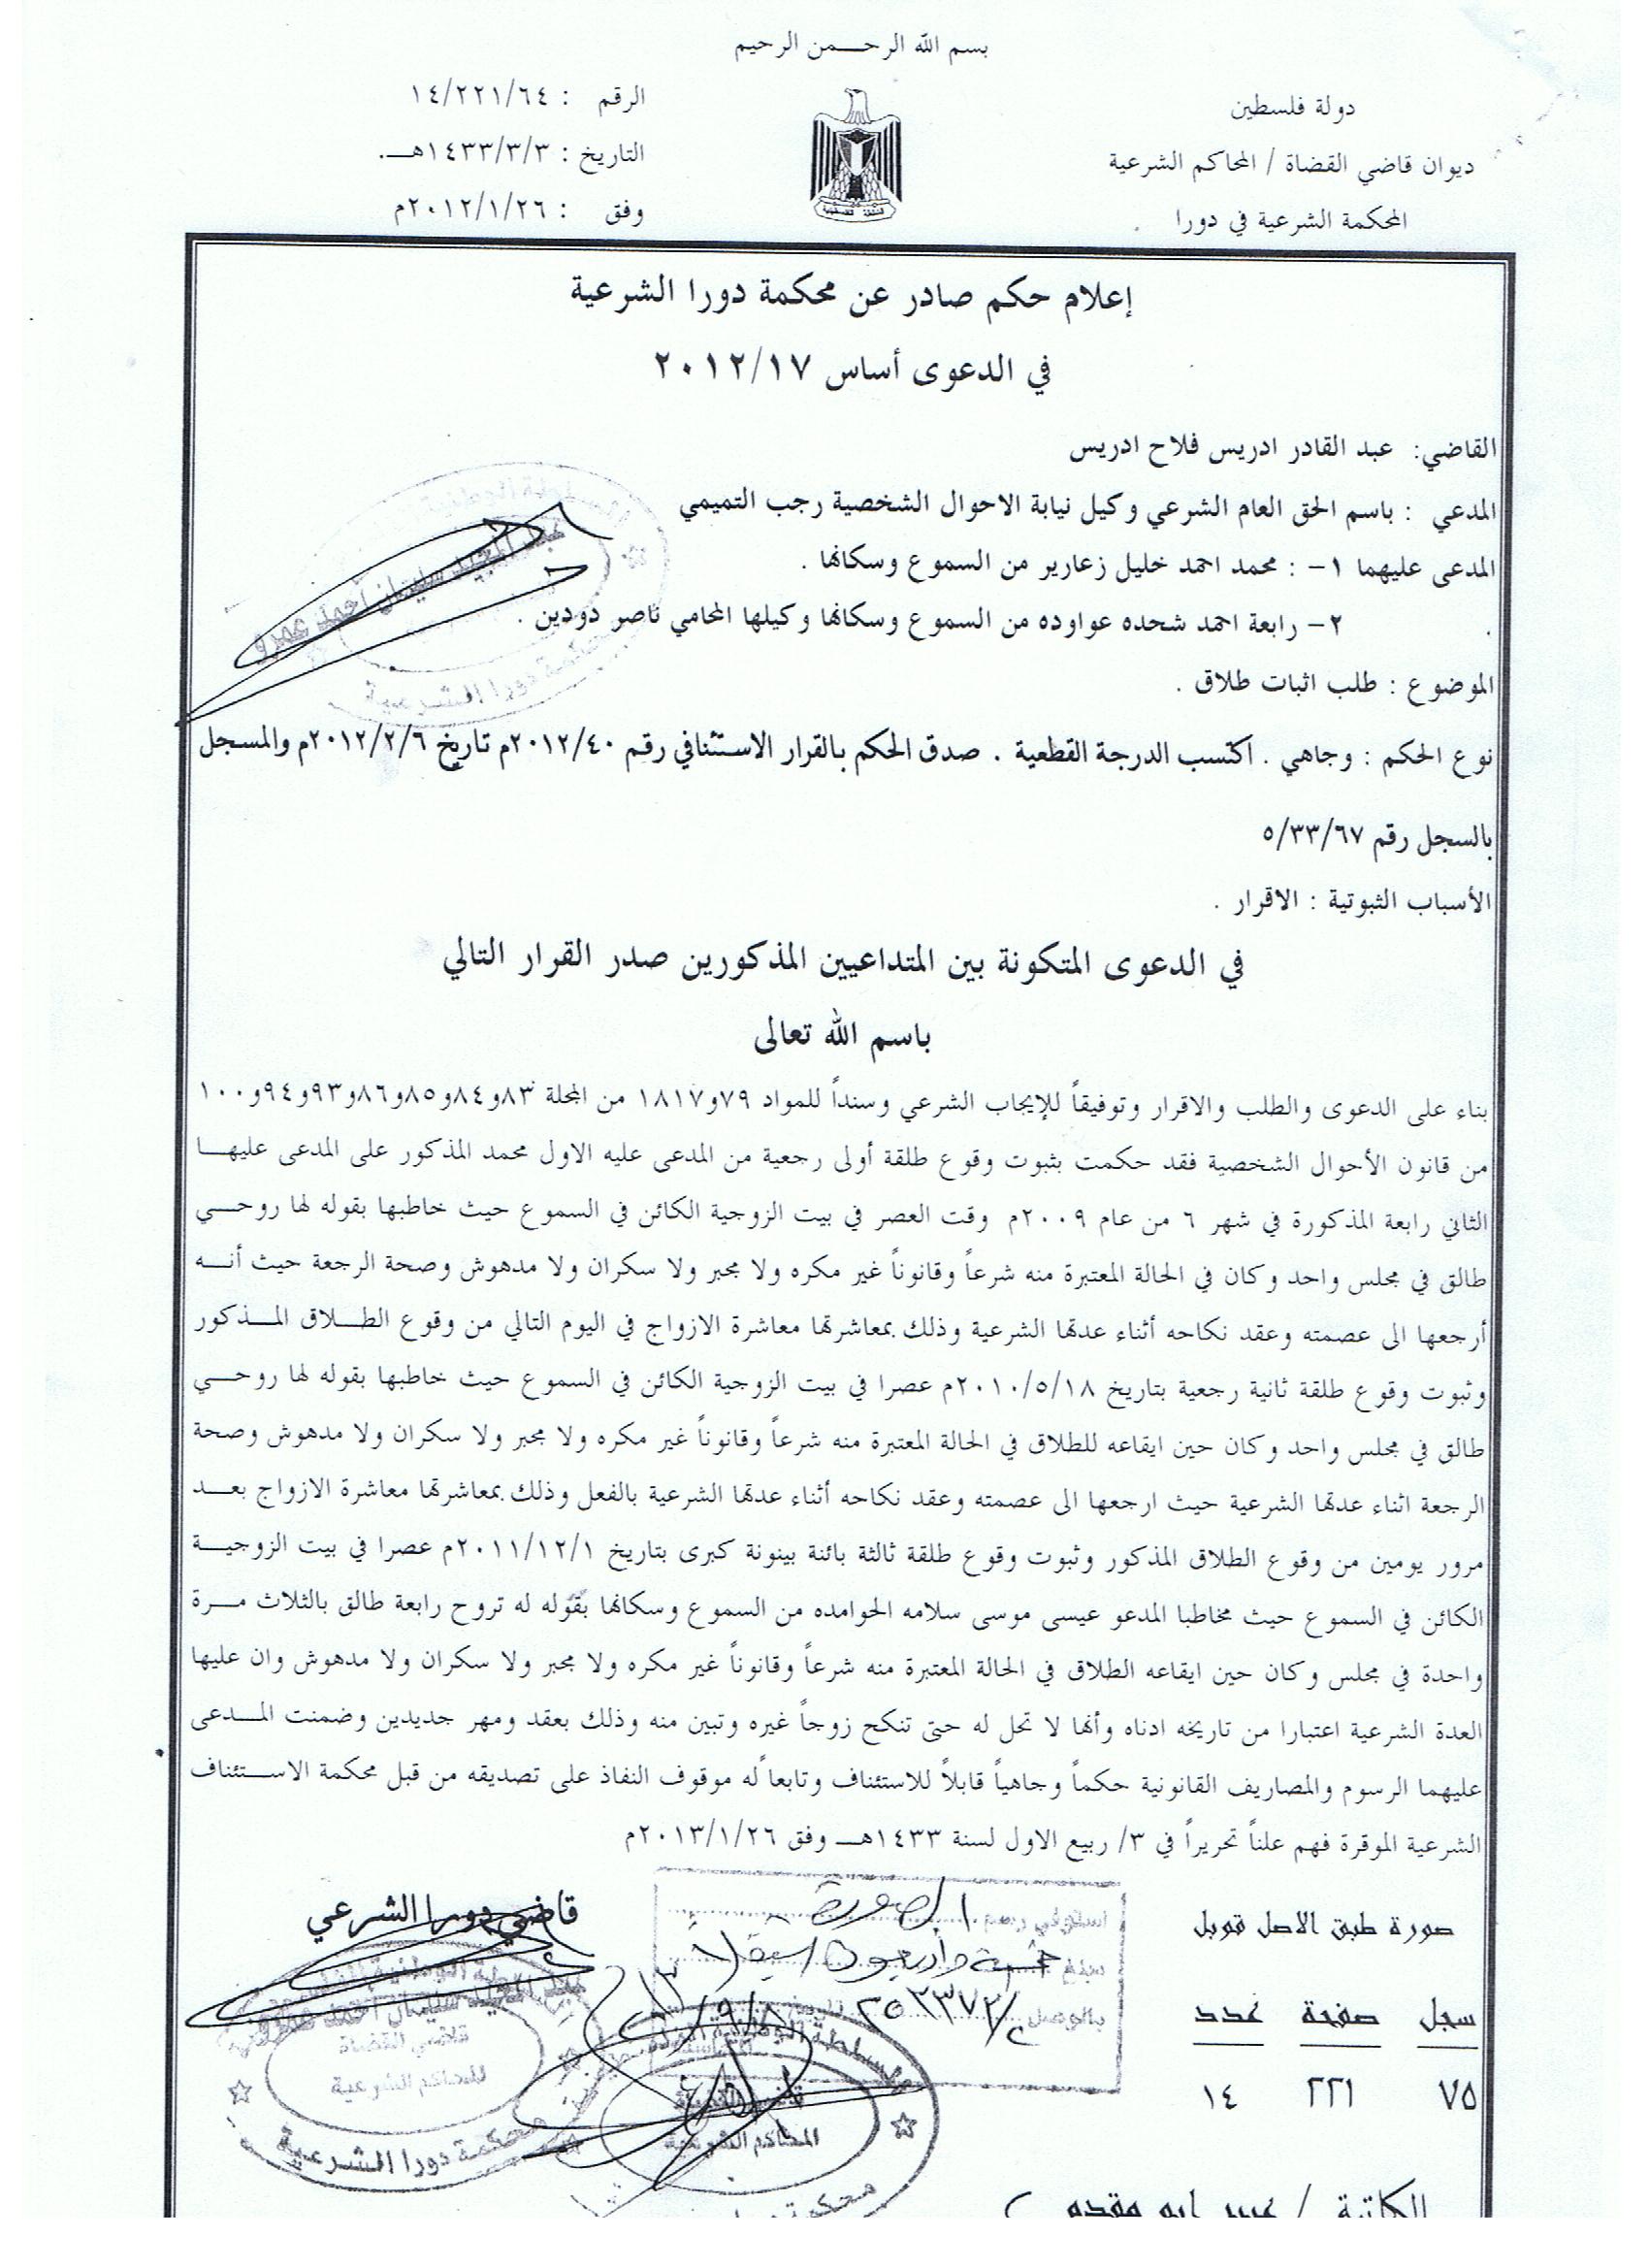 بسم الله الرحمن الرحيم
دولة فلسطين
ديوان قاضي القضاة / المحاكم الشرعية
المحكمة الشرعية في دورا
الرقم : ١٤/٢٢١/٦٤
التاريخ : ١٤٣٣/٣/٣هـ.
وفق : ٢٠١٢/١/٢٦م
إعلام حكم صادر عن محكمة دورا الشرعية
في الدعوى أساس ٢٠١٢/١٧
القاضي: عبد القادر ادريس فلاح ادريس
المدعي : باسم الحق العام الشرعي وكيل نيابة الاحوال الشخصية رجب التميمي
المدعى عليهما ١- : محمد احمد خليل زعارير من السموع وسكانها .
٢- رابعة احمد شحده عواوده من السموع وسكانها وكيلها المحامي ناصر دودين .
الموضوع : طلب اثبات طلاق .
نوع الحكم : وجاهي . اكتسب الدرجة القطعية . صدق الحكم بالقرار الاستئنافي رقم ٢٠١٢/٤٠م تاريخ ٢٠١٢/٢/٦م والمسجل
بالسجل رقم ٥/٣٣/٦٧
الأسباب الثبوتية : الاقرار .
في الدعوى المتكونة بين المتداعيين المذكورين صدر القرار التالي
باسم الله تعالى
بناء على الدعوى والطلب والاقرار وتوفيقاً للإيجاب الشرعي وسنداً للمواد ٧٩و١٨١٧ من المجلة ٨٣و٨٤و٨٥و٨٦و٩٣و٩٤و١٠٠
من قانون الأحوال الشخصية فقد حكمت بثبوت وقوع طلقة أولى رجعية من المدعى عليه الاول محمد المذكور على المدعى عليها
الثاني رابعة المذكورة في شهر ٦ من عام ٢٠٠٩م وقت العصر في بيت الزوجية الكائن في السموع حيث خاطبها بقوله لها روحي
طالق في مجلس واحد وكان في الحالة المعتبرة منه شرعاً وقانوناً غير مكره ولا مجبر ولا سكران ولا مدهوش وصحة الرجعة حيث أنه
أرجعها الى عصمته وعقد نكاحه أثناء عدتها الشرعية وذلك بمعاشرتها معاشرة الازواج في اليوم التالي من وقوع الطلاق المذكور
وثبوت وقوع طلقة ثانية رجعية بتاريخ ٢٠١٠/٥/١٨م عصرا في بيت الزوجية الكائن في السموع حيث خاطبها بقوله لها روحي
طالق في مجلس واحد وكان حين ايقاعه للطلاق في الحالة المعتبرة منه شرعاً وقانوناً غير مكره ولا مجبر ولا سكران ولا مدهوش وصحة
الرجعة اثناء عدتها الشرعية حيث ارجعها الى عصمته وعقد نكاحه أثناء عدتها الشرعية بالفعل وذلك بمعاشرتها معاشرة الازواج بعد
مرور يومين من وقوع الطلاق المذكور وثبوت وقوع طلقة ثالثة بائنة بينونة كبرى بتاريخ ٢٠١١/١٢/١م عصرا في بيت الزوجية
الكائن في السموع حيث مخاطبا المدعو عيسى موسى سلامه الحوامده من السموع وسكانها بقوله له تروح رابعة طالق بالثلاث مرة
واحدة في مجلس وكان حين ايقاعه الطلاق في الحالة المعتبرة منه شرعاً وقانوناً غير مكره ولا مجبر ولا سكران ولا مدهوش وان عليها
العدة الشرعية اعتبارا من تاريخه ادناه وأنها لا تحل له حتى تنكح زوجاً غيره وتبين منه وذلك بعقد ومهر جديدين وضمنت المدعى
عليهما الرسوم والمصاريف القانونية حكماً وجاهياً قابلاً للاستئناف وتابعاً له موقوف النفاذ على تصديقه من قبل محكمة الاستئناف
الشرعية الموقرة فهم علناً تحريراً في ٣/ ربيع الاول لسنة ١٤٣٣هـ وفق ٢٠١٣/١/٢٦م
قاضي دورا الشرعي
صورة طبق الاصل قوبل
استوفي رسم الصورة
مبلغ
بالوصل ٢٥٢٣٧٢
سجل صفحة عدد
٧٥ ٢٢١ ١٤
عبد المجيد سليمان احمد عمرو
محكمة دورا الشرعية
قاضي القضاة
المحاكم الشرعية
محكمة دورا الشرعية
المحاكم الشرعية
الكاتبة / عبير ابو مقدم